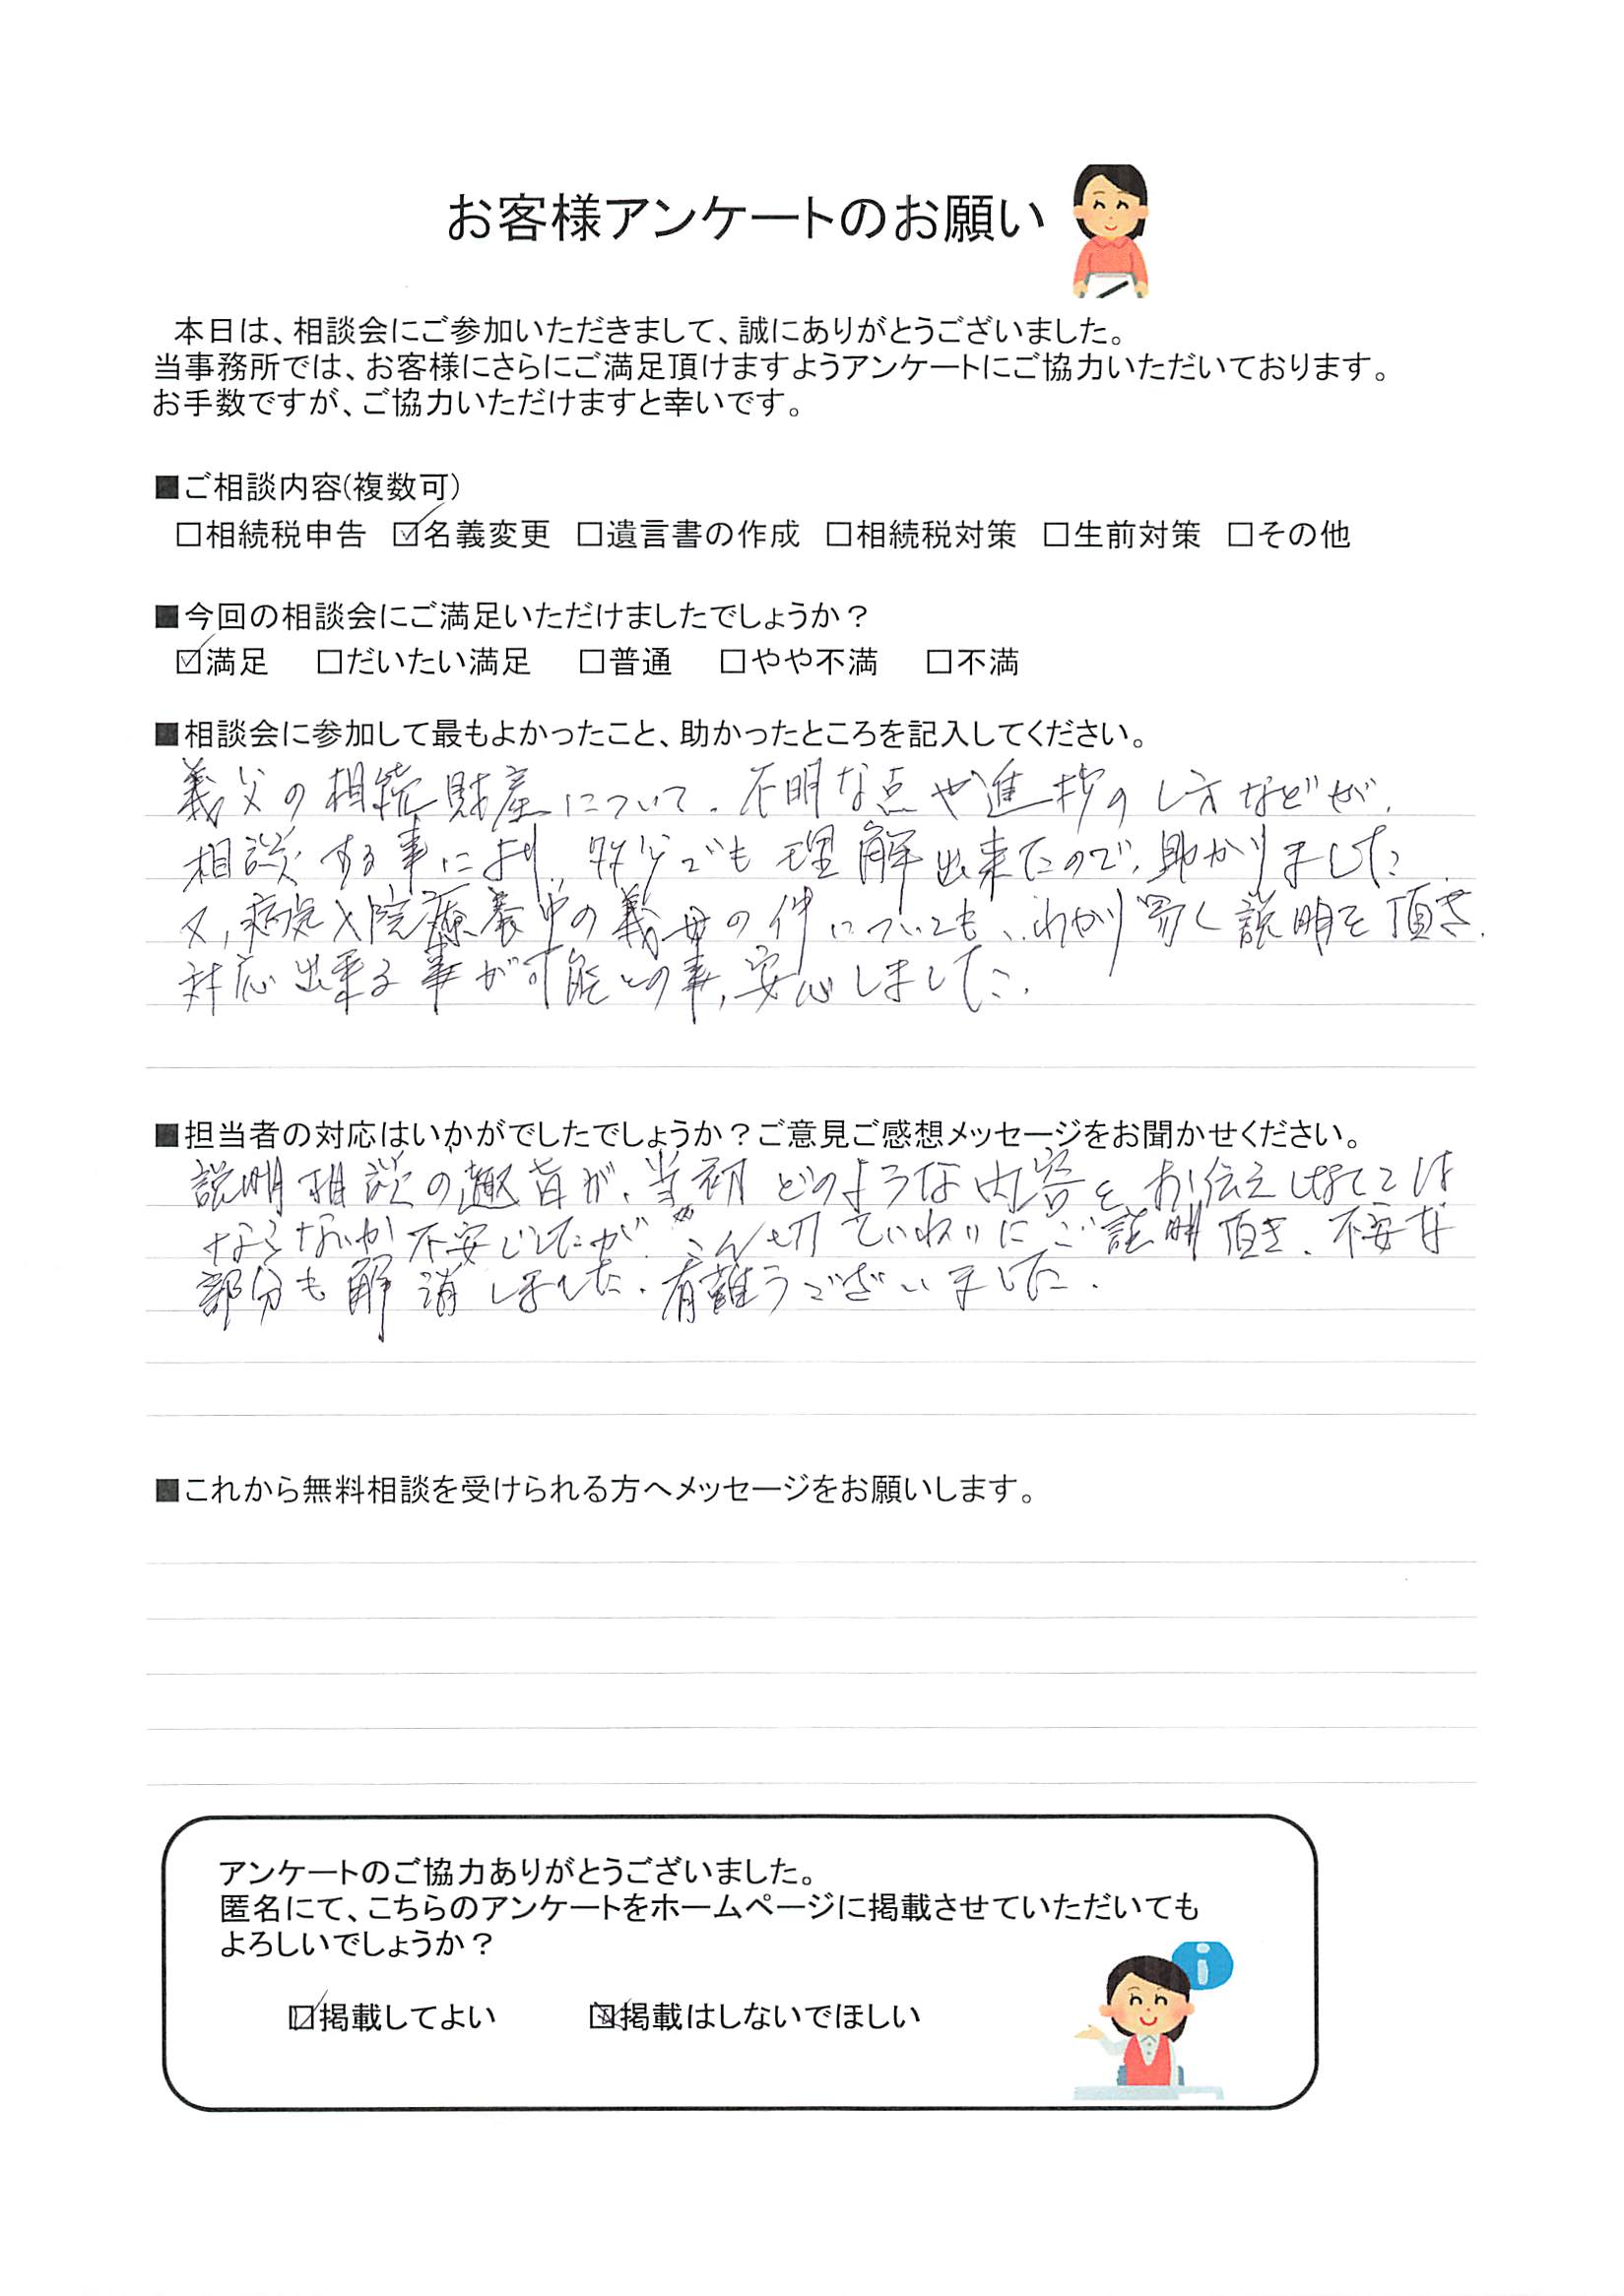 お客様アンケートのお願い
本日は、相談会にご参加いただきまして、誠にありがとうございました。
当事務所では、お客様にさらにご満足頂けますようアンケートにご協力いただいております。
お手数ですが、ご協力いただけますと幸いです。
■ご相談内容(複数可)
□相続税申告 ☑名義変更 □遺言書の作成 □相続税対策 □生前対策 □その他
■今回の相談会にご満足いただけましたでしょうか？
☑満足 □だいたい満足 □普通 □やや不満 □不満
■相談会に参加して最もよかったこと、助かったところを記入してください。
義父の相続財産について、不明な点や進捗のし方などが、
相談する事により、多少でも理解出来たので、助かりました.
又、病院入院療養中の義母の件についても、わかり易く説明を頂き、
対応出来る事が可能との事、安心しました.
■担当者の対応はいかがでしたでしょうか？ご意見ご感想メッセージをお聞かせください。
説明相談の趣旨が、当初どのような内容をお伝えしなくては
ならないか不安でしたが、 切ていねいにご説明頂き、不安な
部分も解消しました.有難うございました.
■これから無料相談を受けられる方へメッセージをお願いします。
アンケートのご協力ありがとうございました。
匿名にて、こちらのアンケートをホームページに掲載させていただいても
よろしいでしょうか？
☑掲載してよい ☒掲載はしないでほしい